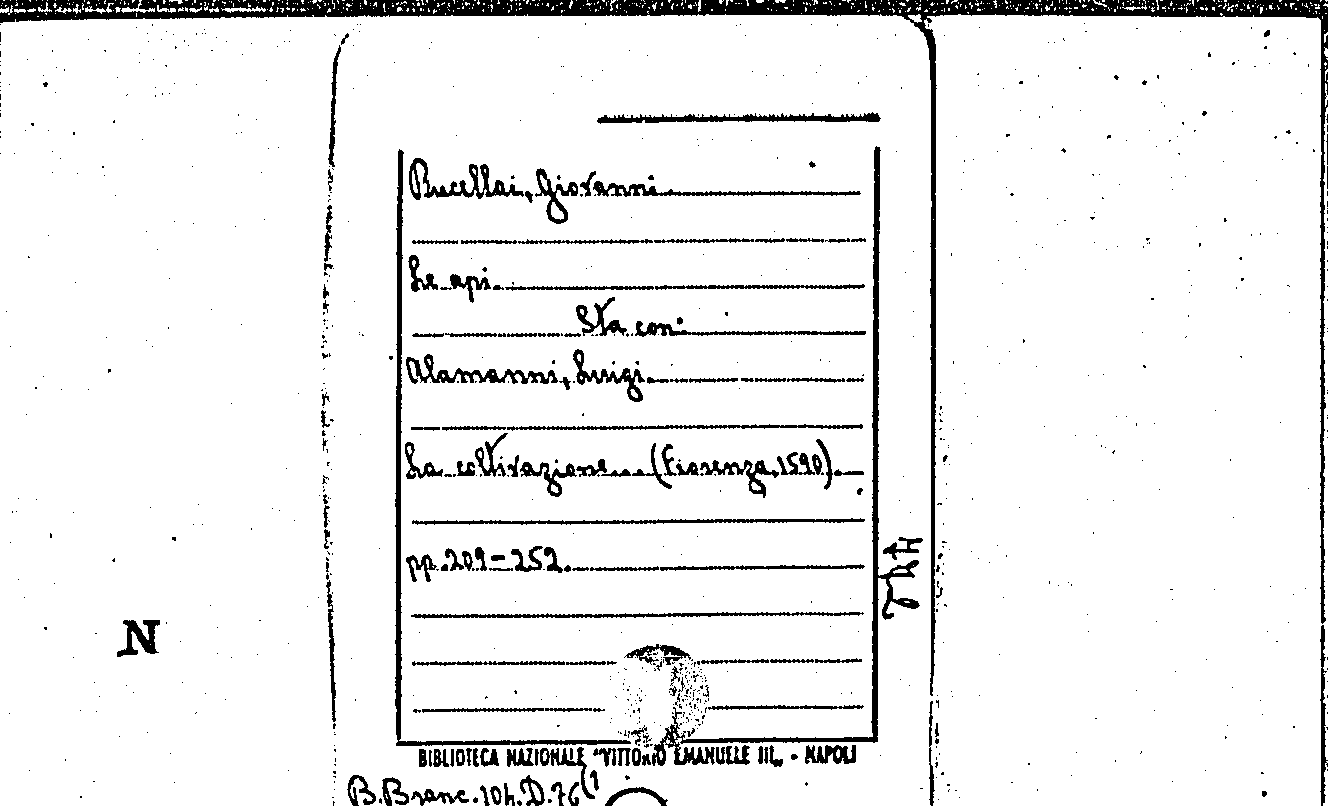 Rucellai, Giovanni
Le api.
Sta con:
Alamanni, Luigi.
La coltivazione... (Fiorenza, 1590).
pp. 209-252.
N
BIBLIOTECA NAZIONALE "VITTORIO EMANUELE III„ - NAPOLI
B. Branc. 104. D. 76 (1